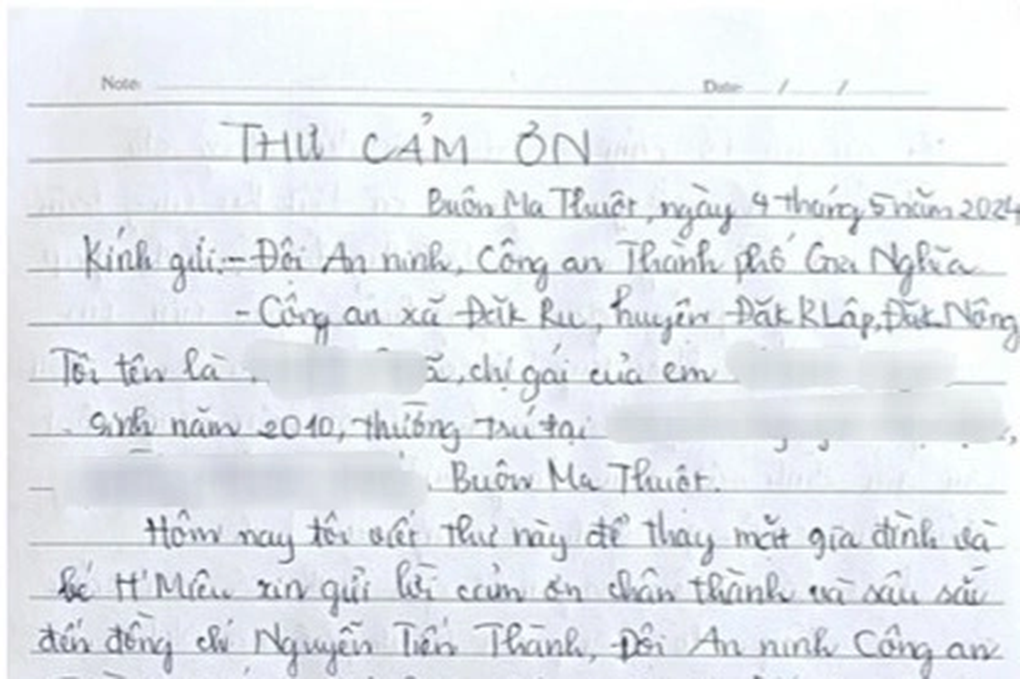 Note: Date: / /
THƯ CẢM ƠN
Buôn Ma Thuột, ngày 4 tháng 5 năm 2024
Kính gửi: - Đội An ninh, Công an Thành phố Gia Nghĩa
- Công an xã Đăk Ru, huyện Đăk RLấp, Đăk Nông
Tôi tên là , chị gái của em
sinh năm 2010, thường trú tại
Buôn Ma Thuột.
Hôm nay tôi viết thư này để thay mặt gia đình và
bé H'Miêu xin gửi lời cảm ơn chân thành và sâu sắc
đến đồng chí Nguyễn Tiến Thành, Đội An ninh Công an